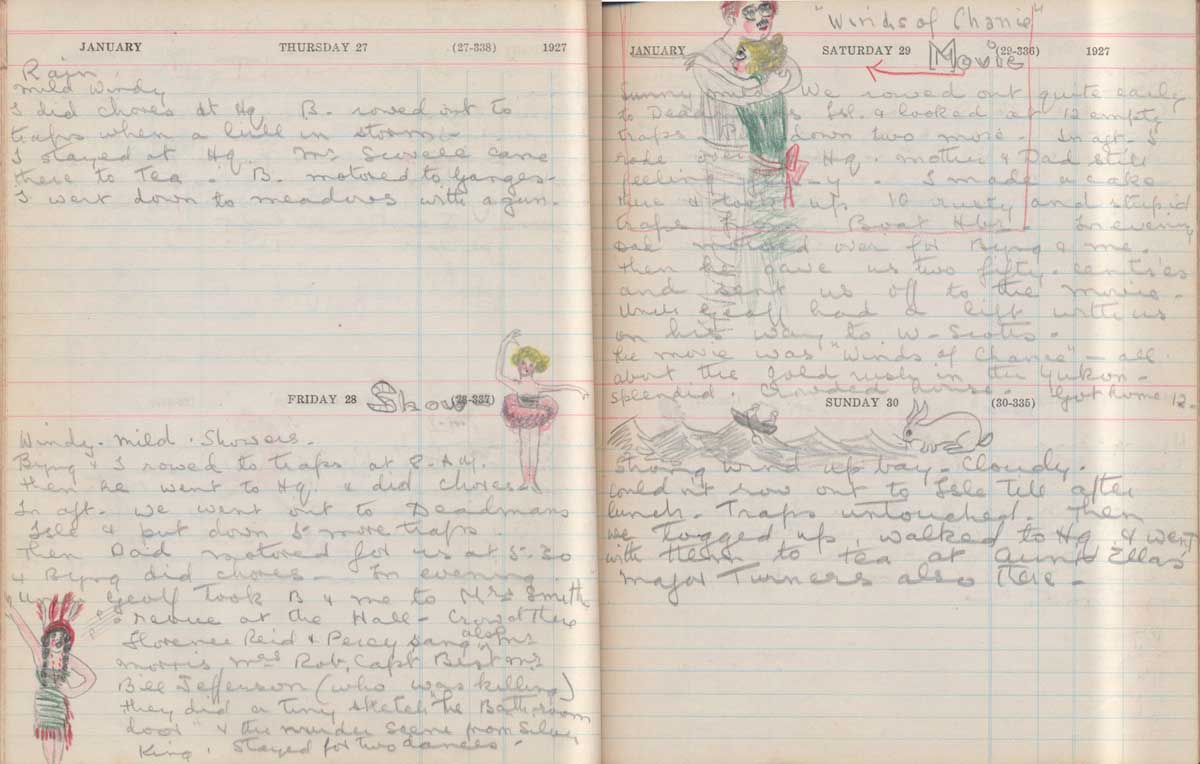 JANUARY THURSDAY 27 (27-338) 1927
Rain.
mild windy
I did chores at Hq. B. rowed out to
traps when a lull in storm.
I stayed at Hq. Mrs Scovell came
there to tea. B. motored to Ganges.
I went down to meadows with a gun.
FRIDAY 28 Show (28-337)
Windy. mild. Showers.
Byng & I rowed to traps at 8. A.M.
then he went to Hq. & did chores.
In aft. we went out to Deadmans
Isle & put down 5 more traps
Then Dad motored for us at 5-30
& Byng did chores - In evening
Geoff took B & me to Mrs Smith
revue at the Hall - Crowd there
Florence Reid & Percy sang also Mr
Morris, Mrs Rob, Capt Best Mr
Bill Jefferson (who was killing)
they did a tiny sketch the Bathroom
door" & the murder scene from Silver
King. Stayed for two dances -
"Winds of Chance"
JANUARY SATURDAY 29 Movie (29-336) 1927
Sunny We rowed out quite early
to Isl. & looked at 12 empty
traps down two more. In aft. I
rode over Hq. mother & Dad still
feeling . I made a cake
& took up 10 rusty and stupid
traps Boat Hbr. In evening
motored over for Byng & me.
then he gave us two fifty-cents'es
and sent us off to the movie.
Uncle Geoff had a lift with us
on his way to W- Scotts.
The movie was "Winds of Chance" - all
about the gold rush in the Yukon -
splendid. Crowded house. Got home 12.
SUNDAY 30 (30-335)
Strong wind up bay. Cloudy.
Couldn't row out to Isle till after
lunch. Traps untouched. Then
we togged up, walked to Hq & went
with them to tea at Aunt Ellas
Major Turners also there -